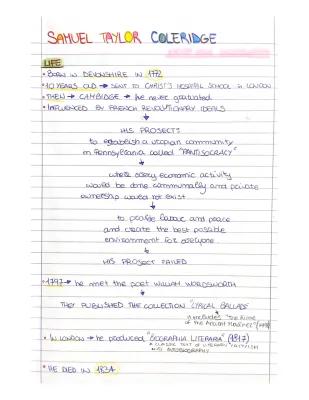 SAMUEL TAYLOR COLERIDGE
LIFE
• BORN IN DEVONSHIRE IN 1772
• 10 YEARS OLD → SENT TO CHRIST'S HOSPITAL SCHOOL IN LONDON
• THEN → CAMBIDGE → he never graduated
• INFLUENCED BY FRENCH REVOLUTIONARY IDEALS
HIS PROJECT:
to establish a utopian community
in Pennsylvania called "PANTISOCRACY"
where every economic activity
would be done communally and private
ownership would not exist
to peace
and create the best possible
environment for everyone
HIS PROJECT FAILED
• 1797 → he met the poet WILLIAM WORDSWORTH
THEY PUBLISHED THE COLLECTION "LYRICAL BALLADS"
it includes "The Rime
of the Ancient Mariner"
• IN LONDON → he produced "BIOGRAPHIA LITERARIA" (1817)
• A CLASSIC TEXT OF LITERARY CRITICISM
AUTOBIOGRAPHY
• HE DIED IN 1834